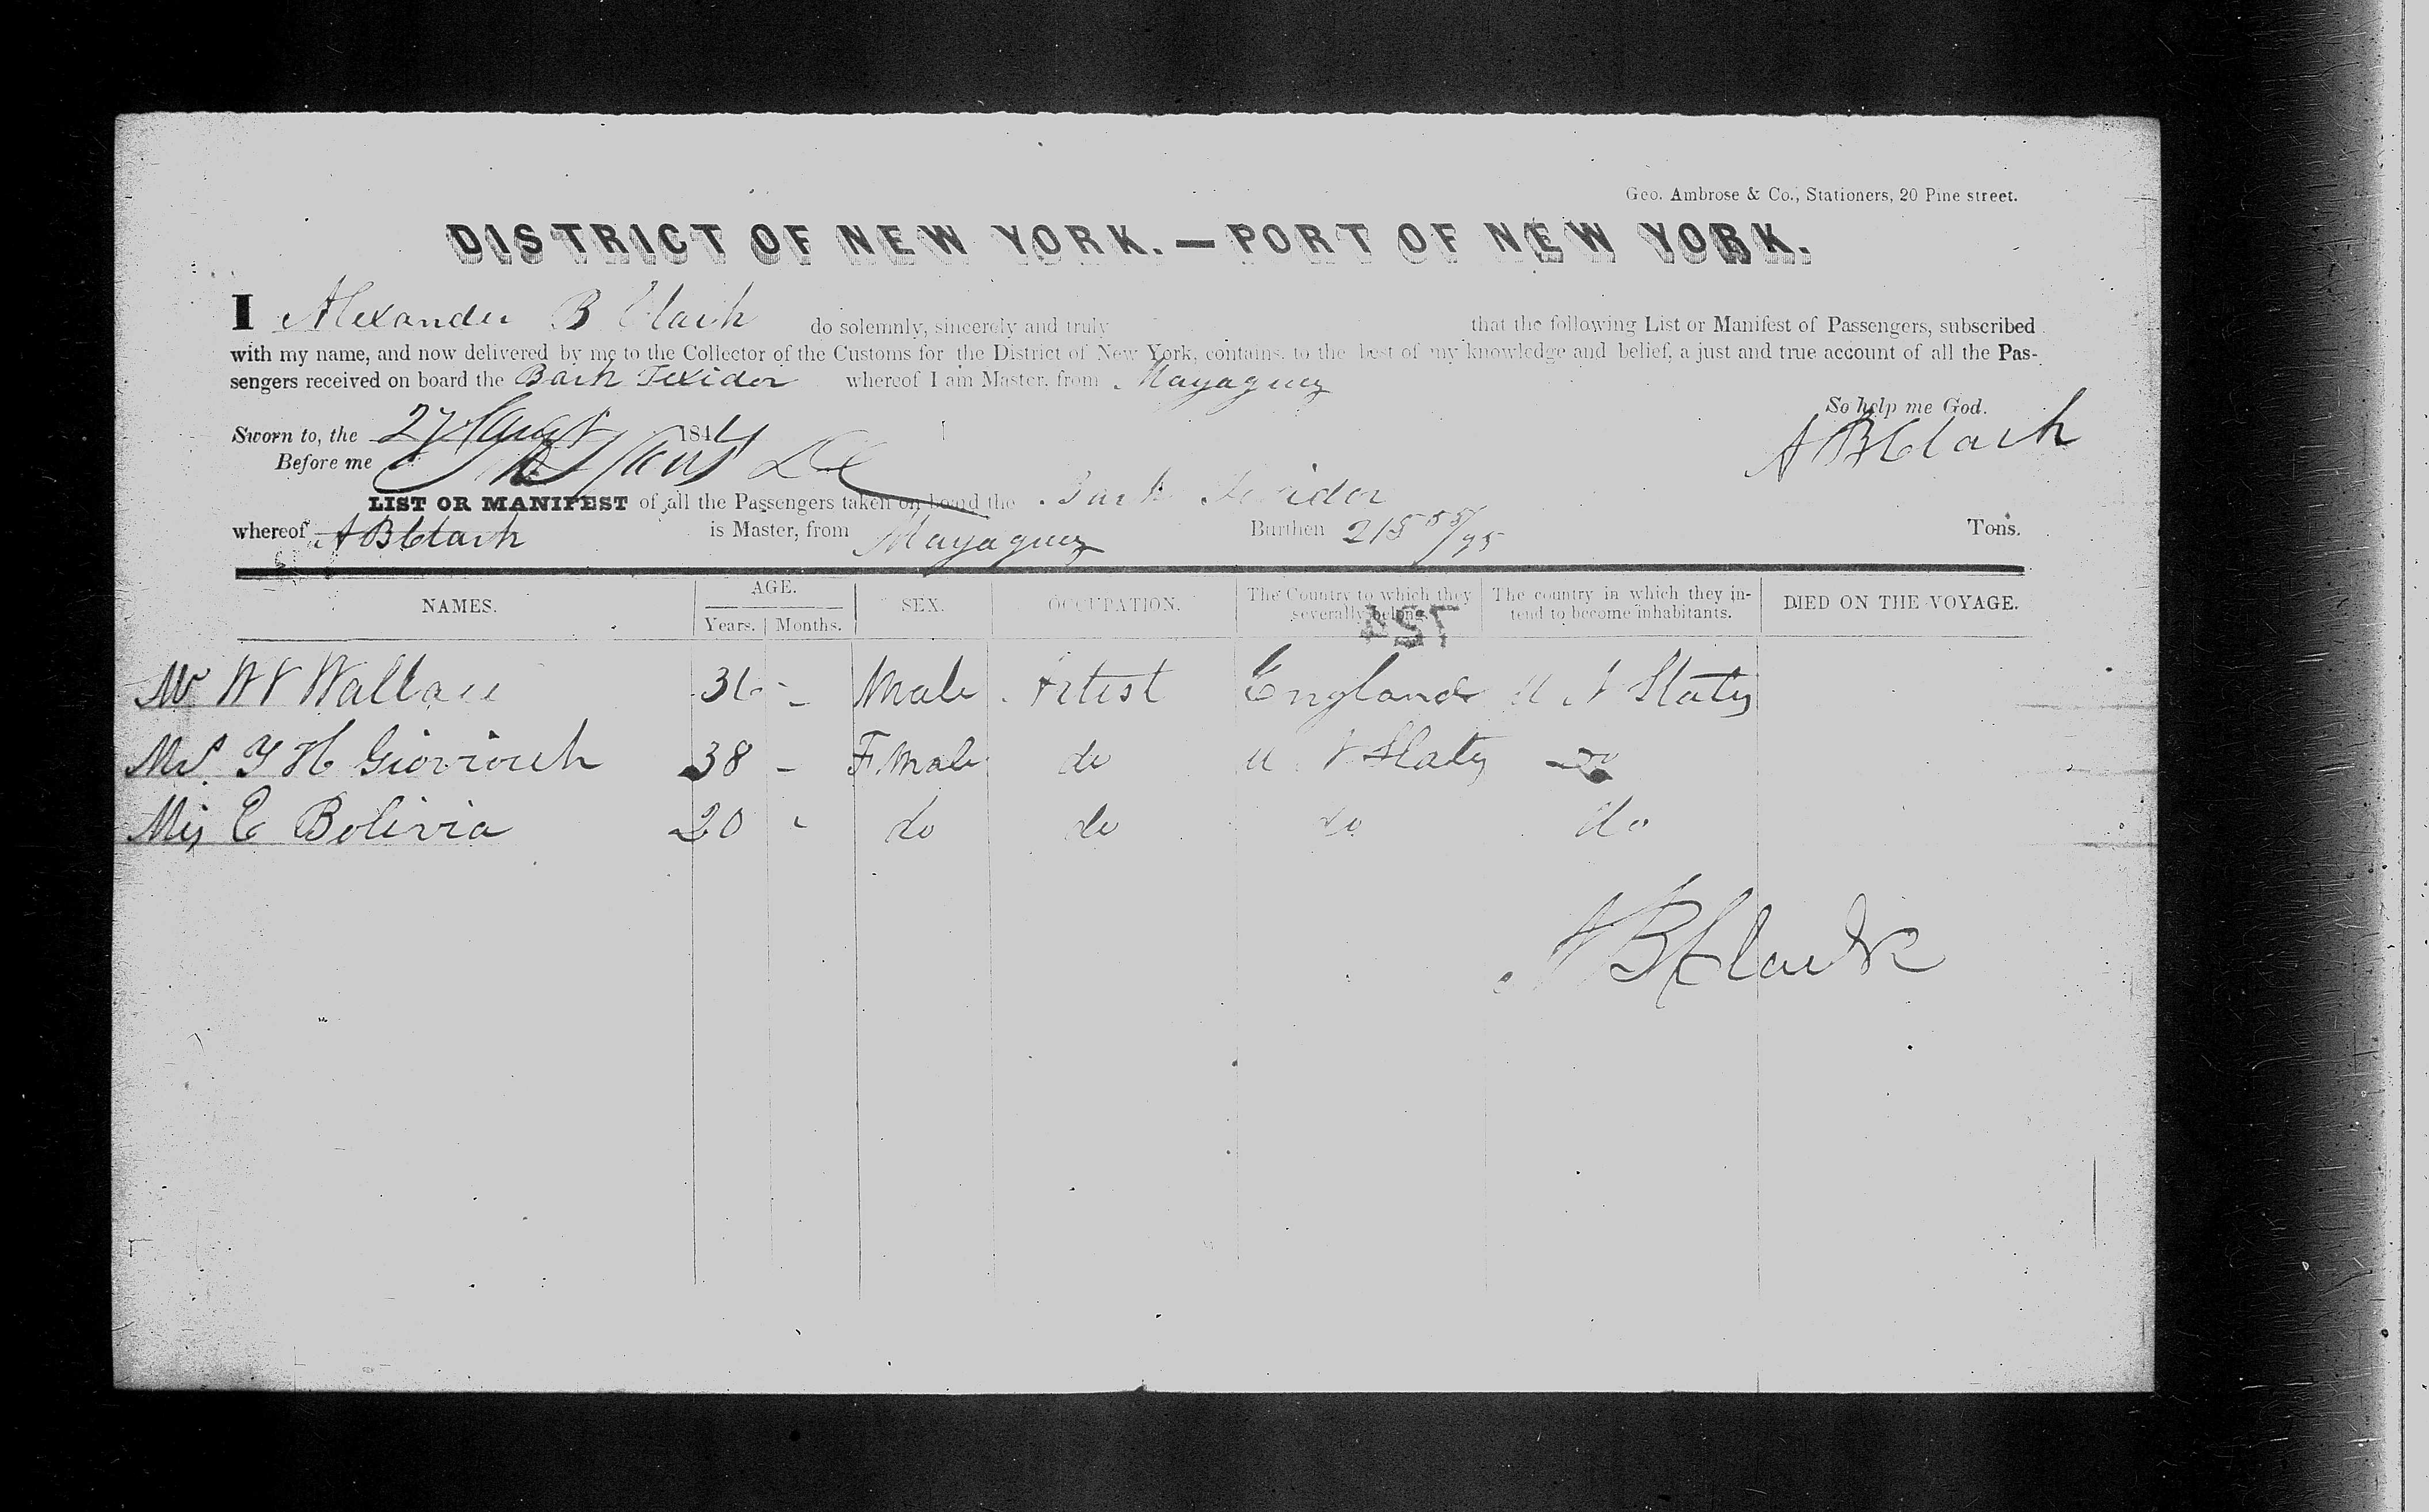 Geo. Ambrose & Co., Stationers, 20 Pine street.
DISTRICT OF NEW YORK. — PORT OF NEW YORK.
I Alexander B Clark do solemnly, sincerely and truly that the following List or Manifest of Passengers, subscribed
with my name, and now delivered by me to the Collector of the Customs for the District of New York, contains, to the best of my knowledge and belief, a just and true account of all the Pas-
sengers received on board the Bark Texidor whereof I am Master, from Mayaguez
So help me God.
Sworn to, the 27 August 1844
A B Clark
Before me
LIST OR MANIFEST of all the Passengers taken on board the Bark Texidor
whereof A B Clark is Master, from Mayaguez Burthen 215 55/95 Tons.
NAMES. AGE. Years. Months. SEX. OCCUPATION. The Country to which they severally belong. The country in which they in-tend to become inhabitants. DIED ON THE VOYAGE.
Mr W V Wallace - Male Artist England U S States
Mrs 38 - F Male do U S States do
Miss E Bolivia 20 do do do do
A B Clark